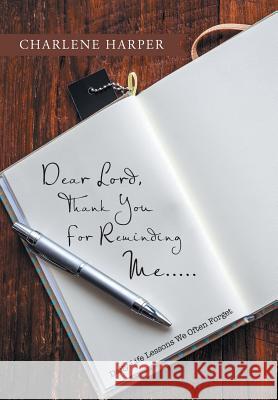 CHARLENE HARPER
Dear Lord,
Thank You
for Reminding
Me.....
Life Lessons We Often Forget